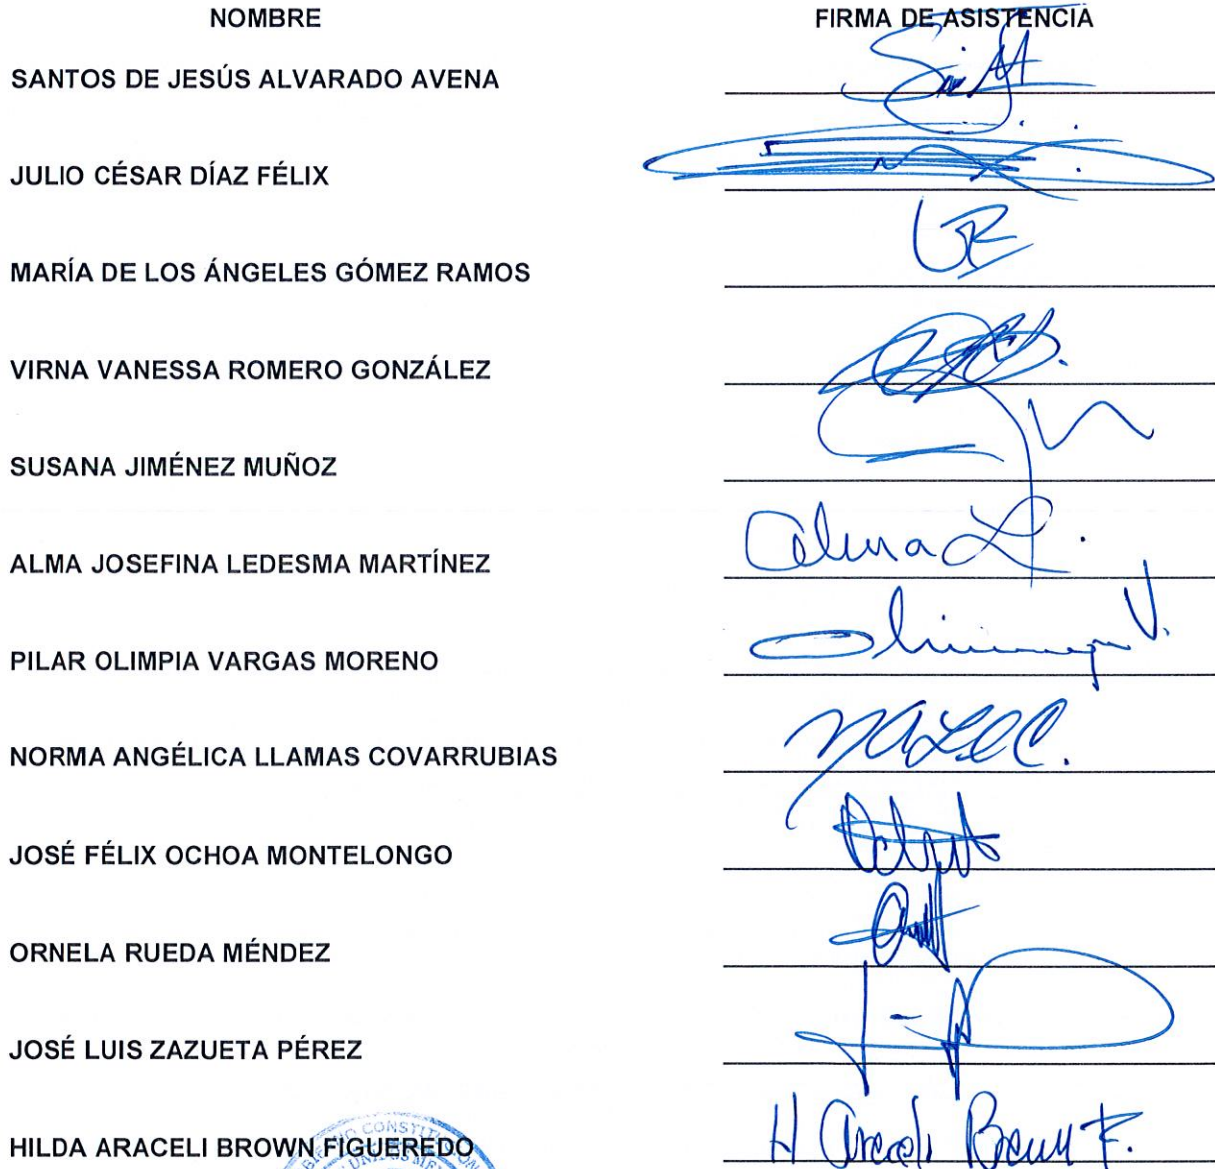 NOMBRE FIRMA DE ASISTENCIA
SANTOS DE JESÚS ALVARADO AVENA
JULIO CÉSAR DÍAZ FÉLIX
MARÍA DE LOS ÁNGELES GÓMEZ RAMOS
VIRNA VANESSA ROMERO GONZÁLEZ
SUSANA JIMÉNEZ MUÑOZ
ALMA JOSEFINA LEDESMA MARTÍNEZ Alma L.
PILAR OLIMPIA VARGAS MORENO
NORMA ANGÉLICA LLAMAS COVARRUBIAS
JOSÉ FÉLIX OCHOA MONTELONGO
ORNELA RUEDA MÉNDEZ
JOSÉ LUIS ZAZUETA PÉREZ
HILDA ARACELI BROWN FIGUEREDO H Araceli Brown F.